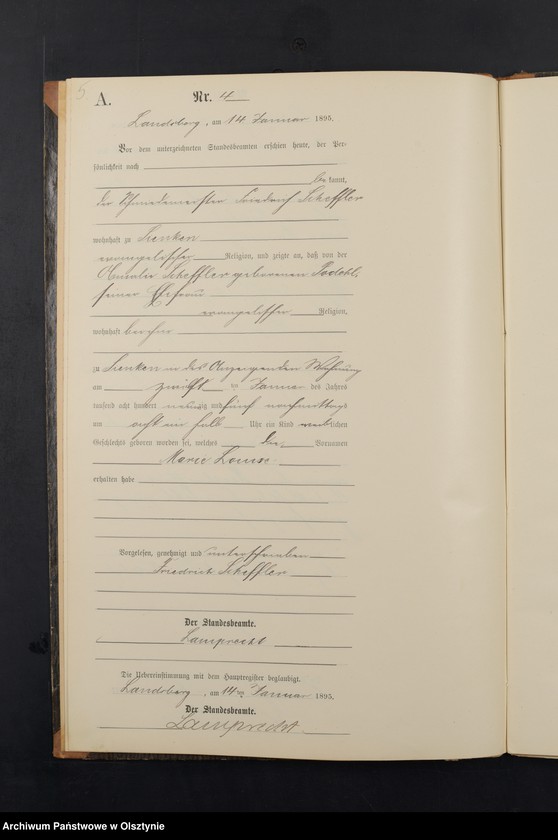 5
A.
Nr. 4
Landsberg, am 14 Januar 1895.
Vor dem unterzeichneten Standesbeamten erschien heute, der Per-
sönlichkeit nach
be kannt,
der Schmiedemeister Friedrich Scheffler
wohnhaft zu
evangelischer Religion, und zeigte an, daß von der
Amalie Scheffler geborenen Podehl,
seiner Ehefrau
evangelischer Religion,
wohnhaft bei ihm
zu in des Anzeigenden Wohnung
am zwölften Januar des Jahres
tausend acht hundert neunzig und fünf nachmittags
um acht ein halb Uhr ein Kind weiblichen
Geschlechts geboren worden sei, welches die Vornamen
Marie Louise
erhalten habe
Vorgelesen, genehmigt und unterschrieben
Friedrich Scheffler
Der Standesbeamte.
Lamprecht
Die Uebereinstimmung mit dem Hauptregister beglaubigt.
Landsberg, am 14ten Januar 1895.
Der Standesbeamte.
Lamprecht
Archiwum Państwowe w Olsztynie